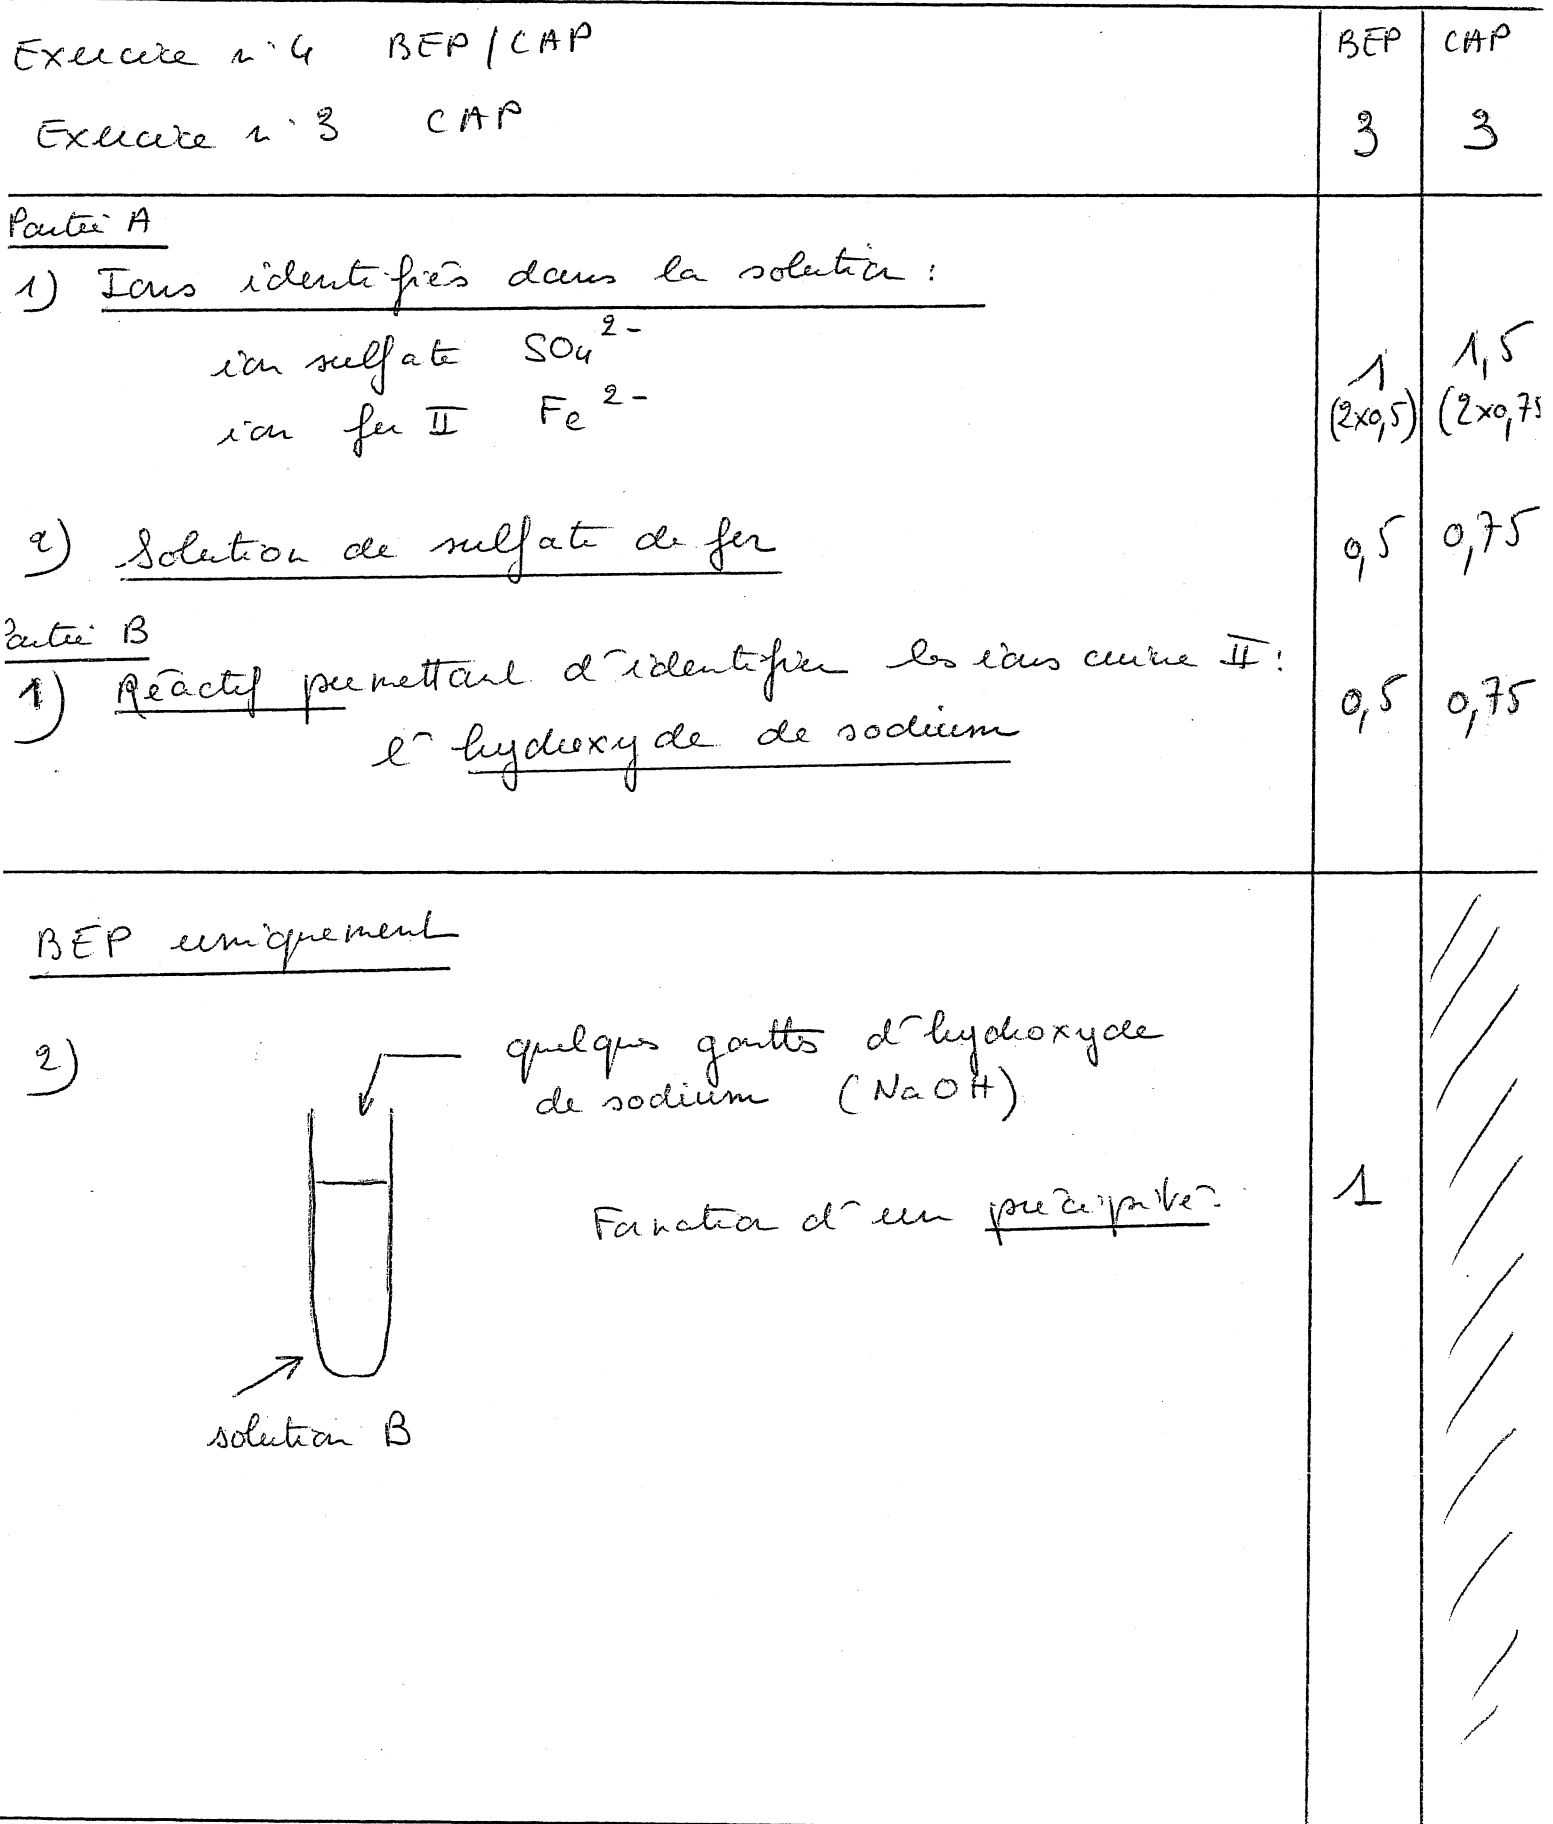 Exercice n°4 BEP/CAP BEP CAP
Exercice n°3 CAP 3 3
Partie A
1) Ions identifiés dans la solution :
ion sulfate SO4 2- 1 1,5
ion fer II Fe 2- (2x0,5) (2x0,75
2) Solution de sulfate de fer 0,5 0,75
Partie B
1) Réactif permettant d'identifier les ions cuivre II : 0,5 0,75
l'hydroxyde de sodium
BEP uniquement
2) quelques gouttes d'hydroxyde
de sodium (NaOH)
Formation d'un précipité. 1
solution B